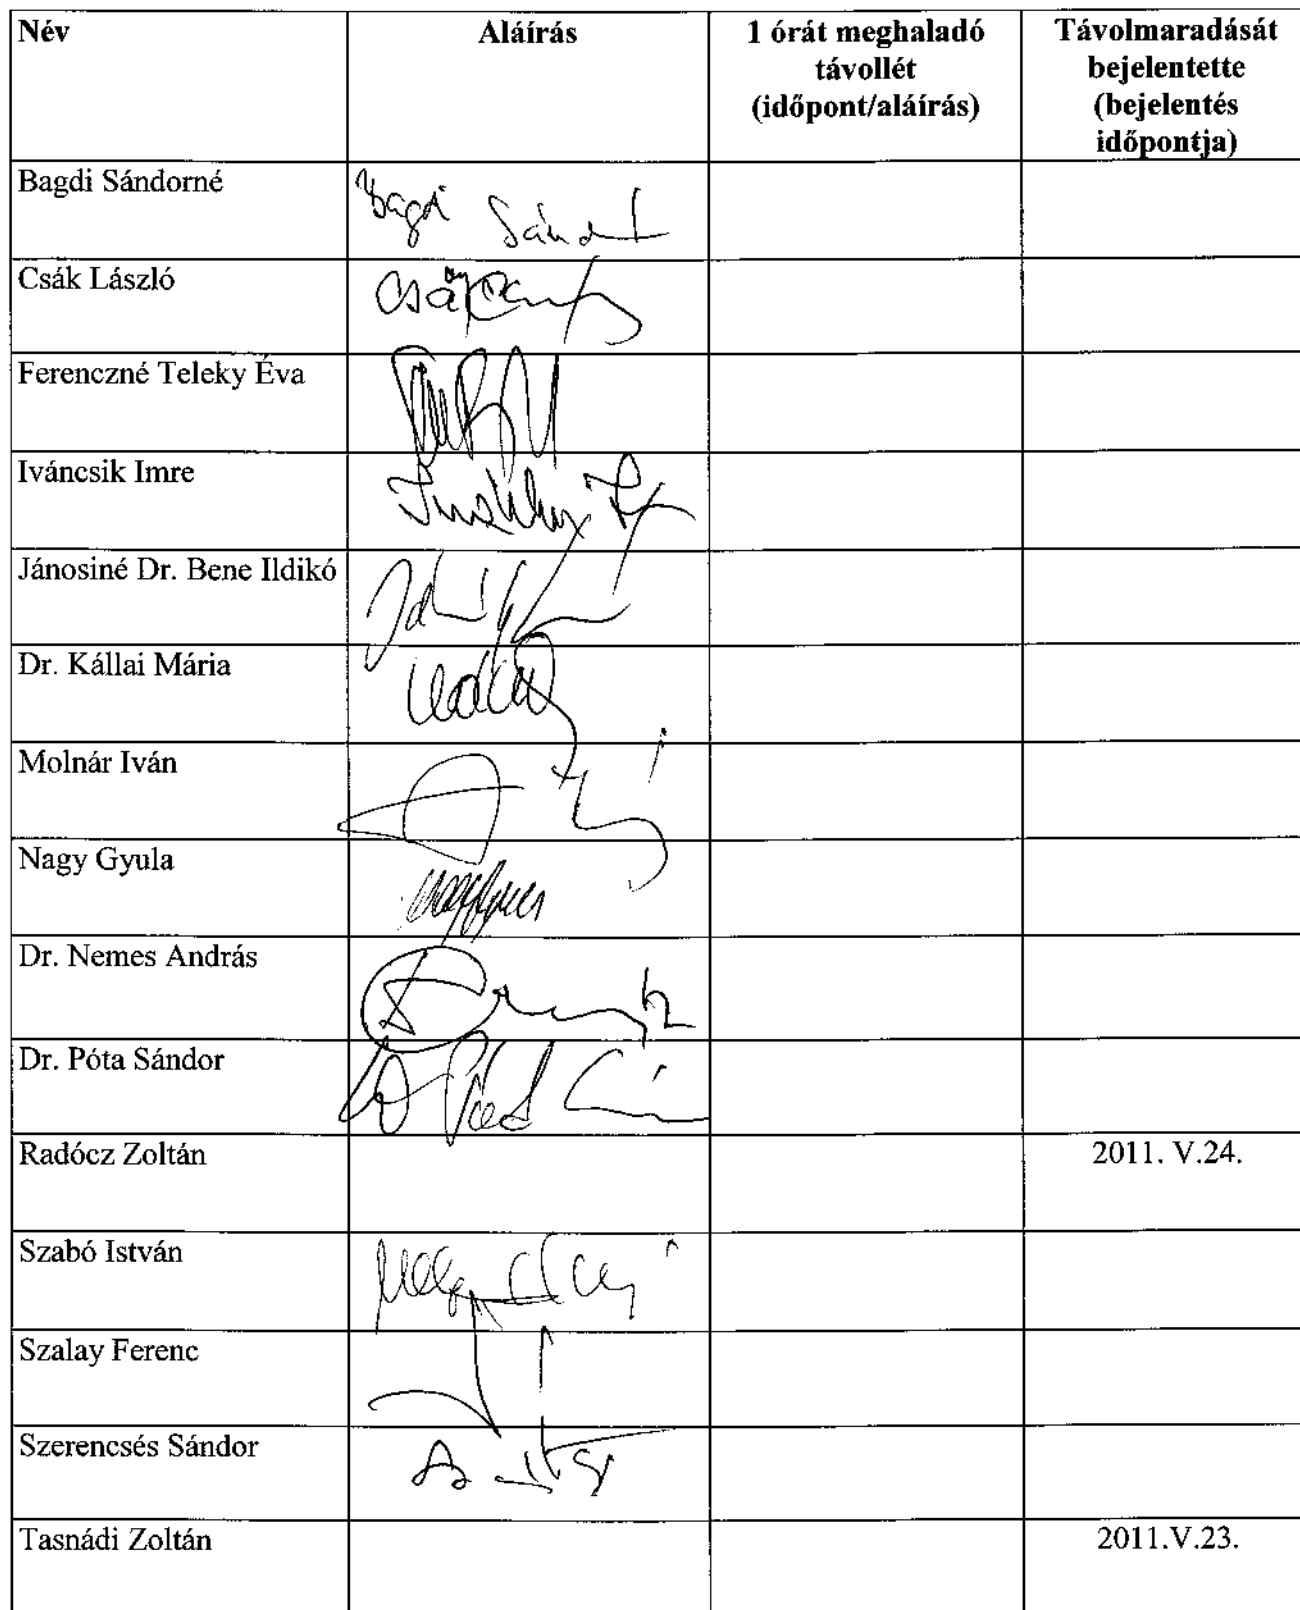 Név
Aláírás
1 órát meghaladó
távollét
(időpont/aláírás)
Távolmaradását
bejelentette
(bejelentés
időpontja)
Bagdi Sándorné
Bagdi Sándor
Csák László
Ferenczné Teleky Éva
Iváncsik Imre
Jánosiné Dr. Bene Ildikó
Dr. Kállai Mária
Molnár Iván
Nagy Gyula
Dr. Nemes András
Dr. Póta Sándor
Radócz Zoltán
2011. V.24.
Szabó István
Szalay Ferenc
Szerencsés Sándor
Tasnádi Zoltán
2011.V.23.